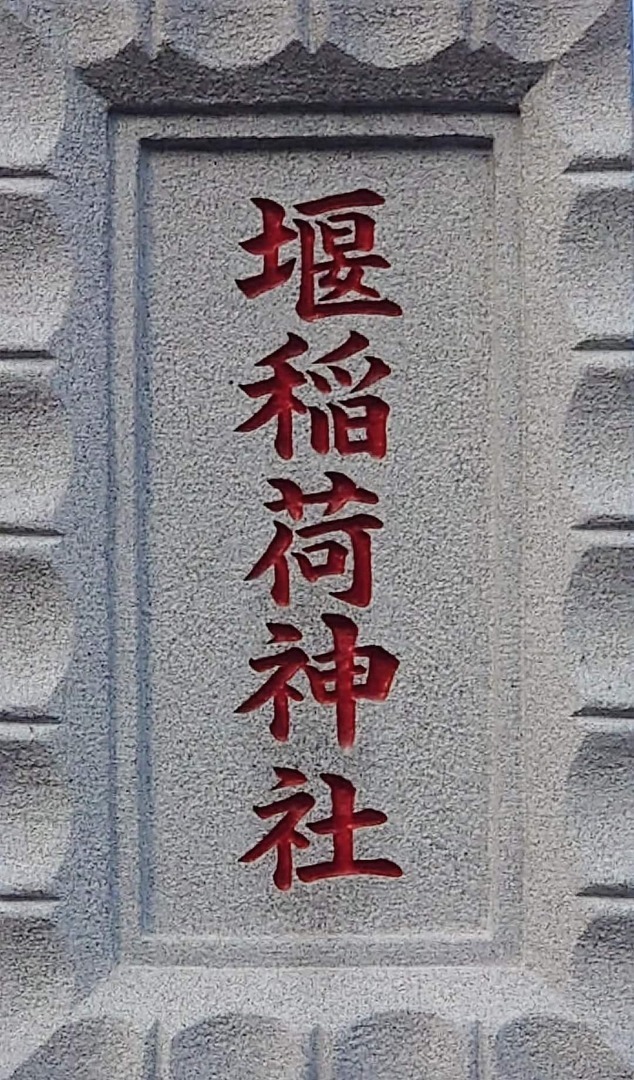 堰稲荷神社